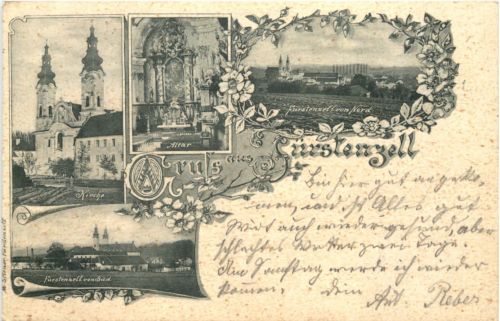 Kirche
Altar
Fürstenzell von Nord
Gruß aus Fürstenzell
Fürstenzell von Süd
Bin hier gut angekom-
men, und ist Alles gut
auch wieder gesund, aber
schlechtes Wetter zwei Tage.
Am Samstag werde ich wieder
kommen. Dein Ant. Reber